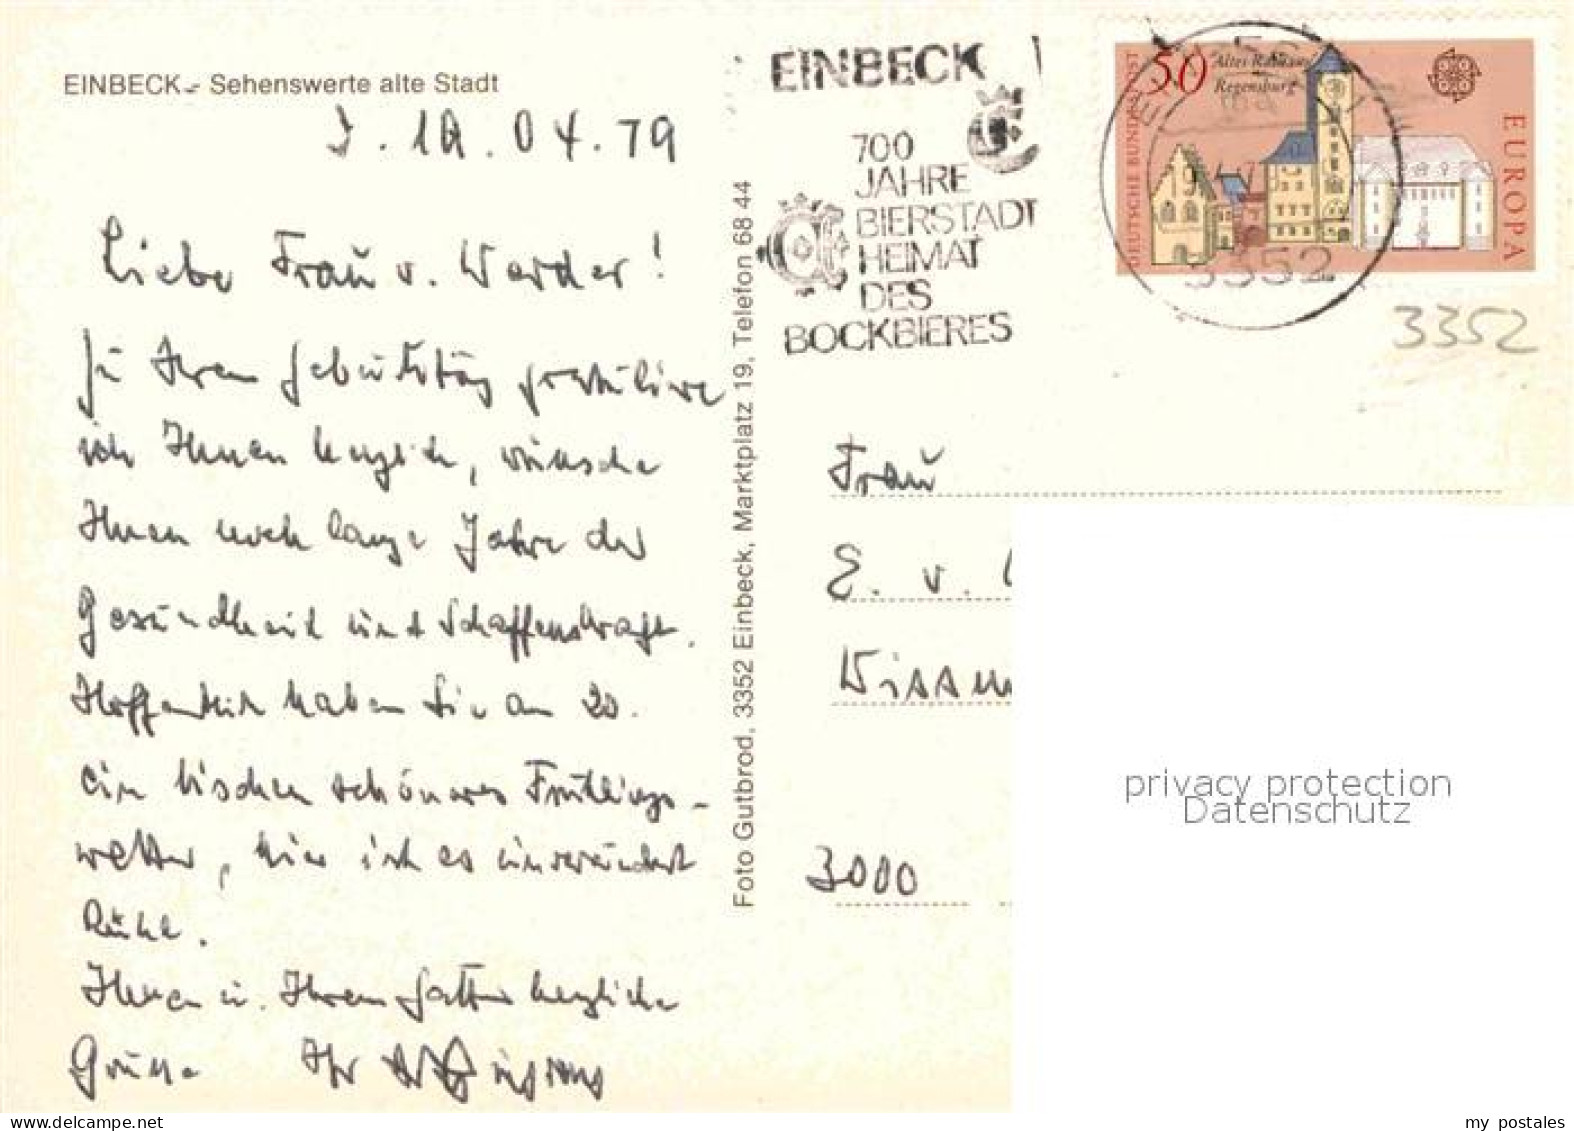 EINBECK - Sehenswerte alte Stadt
04.79
Liebe Frau v. Werder!
Zu Ihrem Geburtstag gratuliere
ich Ihnen herzlich, wünsche
Ihnen noch lange Jahre der
Gesundheit und Schaffenskraft.
Hoffentlich haben Sie am 20.
ein bischen schöneres Frühlings-
wetter, hier ist es unverändert
kühl.
Ihnen u. Ihrem Gatten herzliche
Grüsse Ihr
Foto Gutbrod, 3352 Einbeck, Marktplatz 19, Telefon 68 44
EINBECK
700
JAHRE
BIERSTADT
HEIMAT
DES
BOCKBIERES
50
Altes Rathaus
Regensburg
DEUTSCHE BUNDESPOST
EUROPA
3352
3352
Frau
E. v.
3000
privacy protection
Datenschutz
my postales